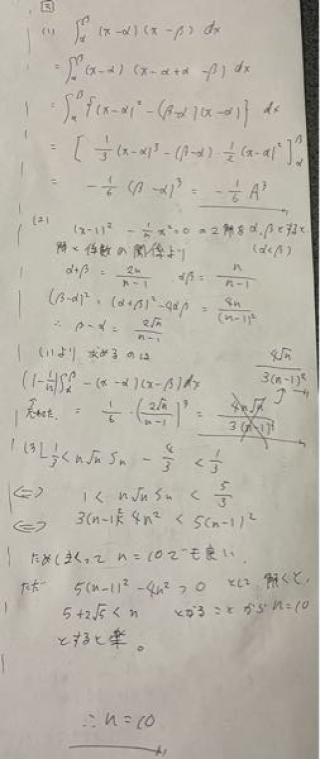 [2]
(1) ∫_α^β (x-α)(x-β) dx
= ∫_α^β (x-α)(x-α+α-β) dx
= ∫_α^β {(x-α)² - (β-α)(x-α)} dx
= [1/3 (x-α)³ - (β-α)・1/2 (x-α)²]_α^β
= -1/6 (β-α)³ = -1/6 A³
(2) (x-1)² - 1/n x² = 0 の2解を α, βとすると
解と係数の関係より (α<β)
α+β = 2n/(n-1) αβ = n/(n-1)
(β-α)² = (α+β)² - 4αβ = 4n/(n-1)²
∴ β-α = 2√n/(n-1)
(1)より 求めるのは
4√n/3(n-1)²
(1-1/n)∫_α^β -(x-α)(x-β) dx
忘れてた = 1/6・(2√n/(n-1))³ =
(3) -1/3 < n√n Sn - 4/3 < 1/3
⇔ 1 < n√n Sn < 5/3
⇔ 3(n-1)² < 4n² < 5(n-1)²
n=10でも良い
ただ 5(n-1)² - 4n² > 0 として 解くと、
5+2√5 < n となることから n=10
とすると楽。
∴ n=10